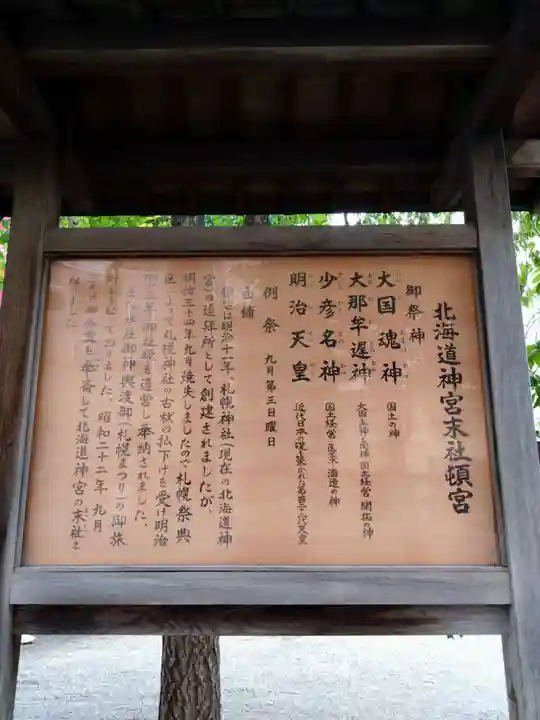 北海道神宮末社頓宮
御祭神
大国魂神 国土の神
大那牟遅神 大国主神と同神 国土経営 開拓の神
少彦名神 国土経営 医薬 酒造の神
明治天皇 近代日本の礎を築かれた第百二十二代天皇
例祭 九月第三日曜日
由緒
頓宮は明治十一年、札幌神社(現在の北海道神
宮)の遥拝所として創建されましたが、
明治三十四年九月焼失しましたので札幌祭典
区によって札幌神社の古材の払下げを受け明治
四十二年御社殿を造営し奉納されました。
また、神社御神輿渡御(札幌まつり)の御旅
所となっておりました。昭和二十二年九月
御祭神を奉斎して北海道神宮の末社と
なりました